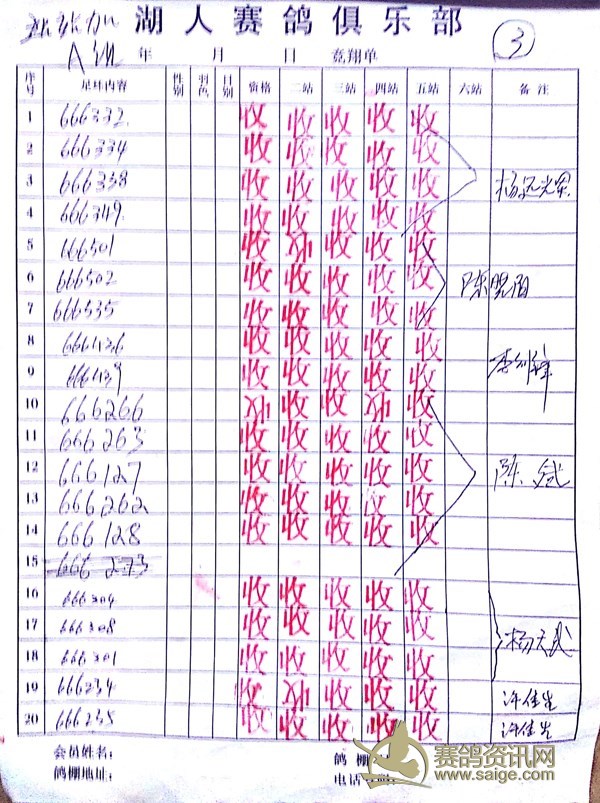 湖人赛鸽俱乐部
A组 年 月 日 竞翔单 ③
序号 足环内容 性别 羽色 日别 资格 二站 三站 四站 五站 六站 备注
1 666332 收 收 收 收 收
2 666334 收 收 收 收 收
3 666338 收 收 收 收 收
4 666349 收 收 收 收 收
5 666501 收 收 收 收 收
6 666502 收 收 收 收 收
7 666535 收 收 收 收 收
8 666436 收 收 收 收 收
9 666439 收 收 收 收 收
10 666266 收 收 收 收 收
11 666263 收 收 收 收 收
12 666127 收 收 收 收 收 陈斌
13 666262 收 收 收 收 收
14 666128 收 收 收 收 收
15 666273
16 666304 收 收 收 收 收
17 666308 收 收 收 收 收
18 666301 收 收 收 收 收
19 666234 收 收 收 收 收 许佳生
20 666238 收 收 收 收 收 许佳生
会员姓名: 鸽棚
鸽棚地址: 电话
赛鸽资讯网
www.saige.com